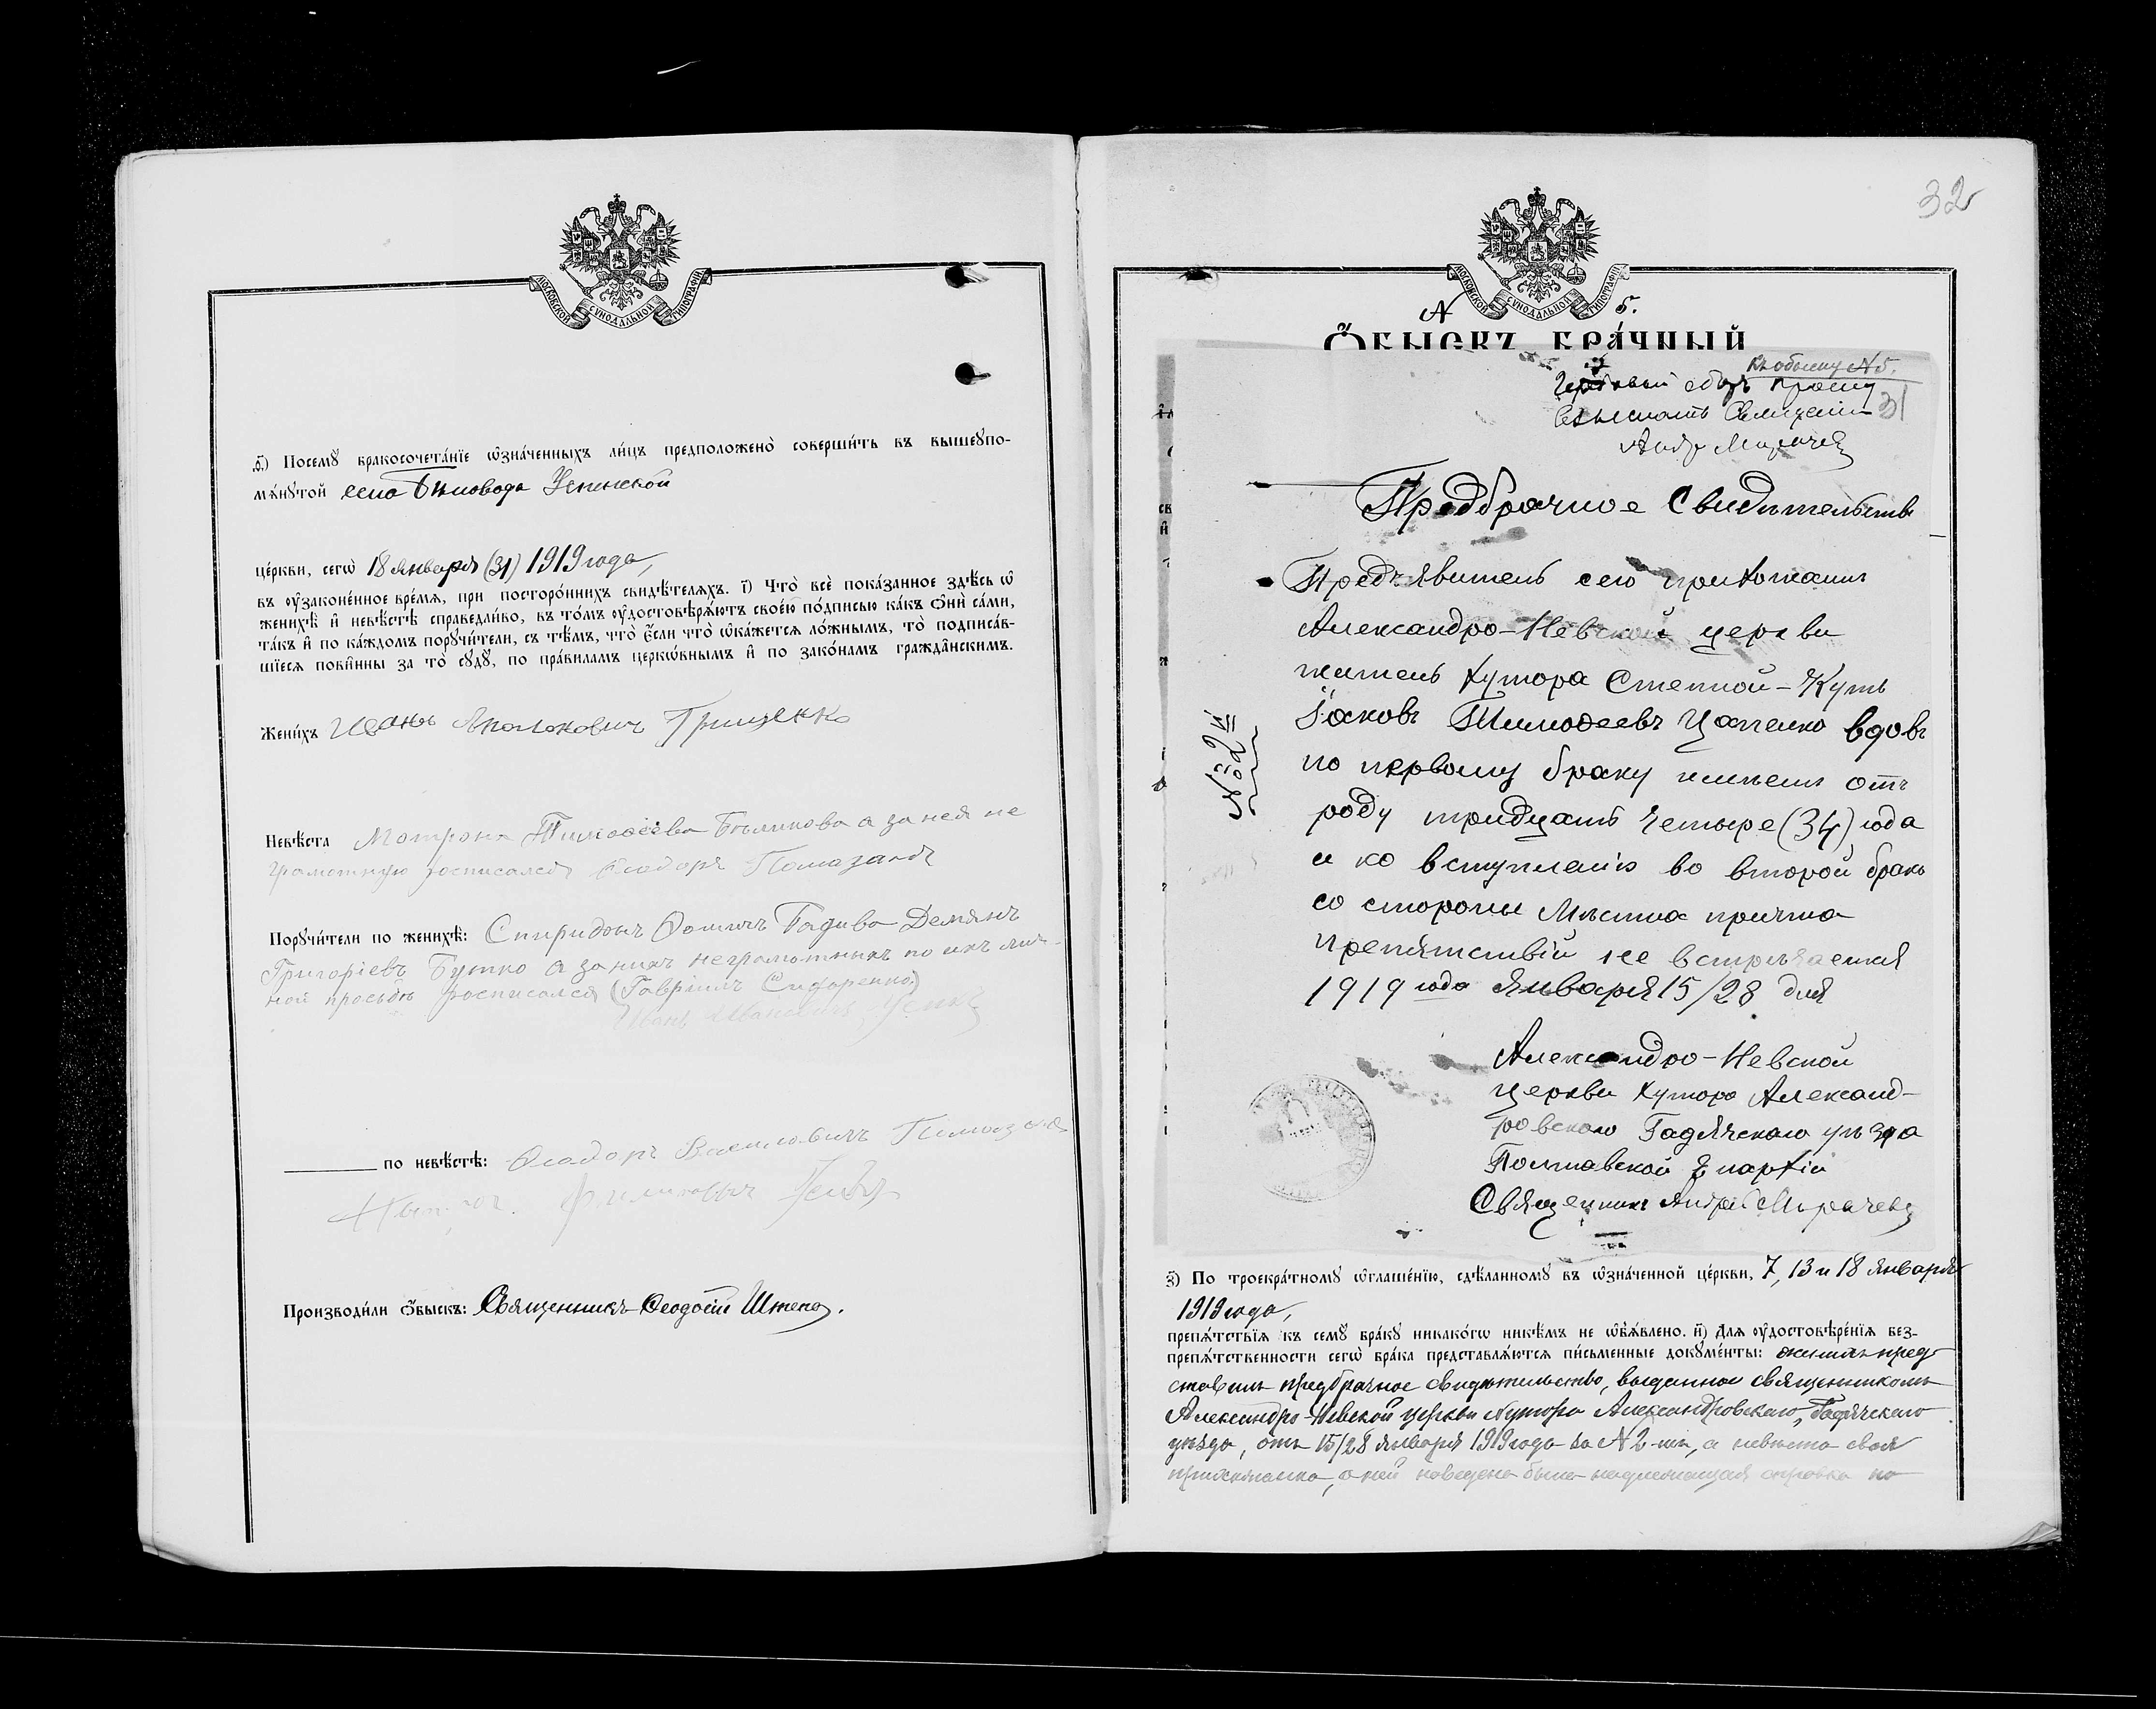 МОСКОВСКОЙ СУНОДАЛЬНОЙ ТИПОГРАФІИ
Посемꙋ бракосочета́нїе ѡзна́ченныхъ ли́цъ предположено̀ соверши́ть въ вышеꙋпо-
мѧ́нꙋтой села Бѣловода Успенской
це́ркви, сегѡ̀ 18 января (31) 1919 года,
въ ᲂу҆законе́нное вре́мѧ, при посторо́ннихъ свидѣ́телѧхъ. і҃) Что̀ всѐ пока́занное здѣ́сь ѡ҆
женихѣ̀ и҆ невѣ́стѣ справедли́во, въ то́мъ ᲂу҆достовѣрѧ́ютъ свое́ю по́дписью ка́къ ѻ҆нѝ са́ми,
та́къ и҆ по ка́ждомъ порꙋчи́тели, съ тѣ́мъ, что̀ є҆́сли что̀ ѡ҆ка́жетсѧ ло́жнымъ, то̀ подписа́в-
шїесѧ пови́нны за то̀ сꙋдꙋ̀, по пра́виламъ церко́внымъ и҆ по зако́намъ гражда́нскимъ.
Жени́хъ Иванъ Грищенко
Невѣ́ста Матрона Тимоѳеева Бѣликова а за нея не
грамотную росписался Ѳеодоръ Помазанъ
Порꙋчи́тели по женихѣ̀: Спиридонъ Ѳомичъ Демянъ
Григоріевъ Бутко а за нихъ неграмотныхъ по ихъ лич-
ной просьбѣ росписался (Гавріилъ Сидоренко)
Иванъ Ивановичъ
по невѣ́стѣ: Ѳеодоръ Василовичъ
Производи́ли ѻ҆́быскъ: Священникъ Ѳеодосій Штепа.
32
МОСКОВСКОЙ СУНОДАЛЬНОЙ ТИПОГРАФІИ
А 5.
Ѻ҆БЫСКЪ БРА́ЧНЫЙ
Къ обыску № 5.
Гербовый сборъ прошу
взыскать Священникъ
31
Предбрачное Свидѣтельство
Предъявитель сего прихожанинъ
Александро-Невской церкви
житель хутора Степной-Кутъ
Іаковъ Тимоѳеевъ Цапенко вдовъ
по первому браку имѣетъ отъ
роду тридцать четыре (34) года
и ко вступленію во второй бракъ
со стороны мѣстна причта
препятствій не встрѣчается
1919 года января 15/28 дня
№ 2й
Александро-Невской
церкви хутора Александ-
ровскаго Гадячскаго уѣзда
Полтавской Епархіи
Священникъ Андрей
з҃) По троекра́тномꙋ ѡ҆глаше́нїю, сдѣ́ланномꙋ въ ѡ҆зна́ченной це́ркви, 7, 13 и 18 января
1919 года,
препѧ́тствїѧ къ семꙋ̀ бра́кꙋ никако́гѡ никѣ́мъ не ѡ҆б̾ѧ́влено. и҃) Длѧ ᲂу҆достовѣре́нїѧ без-
препѧ́тственности сегѡ̀ бра́ка представлѧ́ютсѧ пи́сьменные докꙋме́нты: женихъ пред-
ставилъ предбрачное свидѣтельство, выданное священникомъ
Александро-Невской церкви хутора Александровскаго, Гадячскаго
уѣзда, отъ 15/28 января 1919 года за № 2-мъ, а невѣста своя
прихожанка, о ней наведена была надлежащая справка по